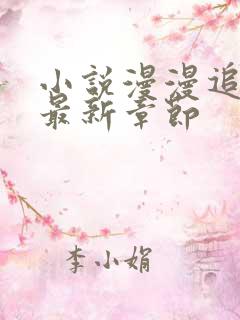 小说漫漫追
最新章节
李小娟